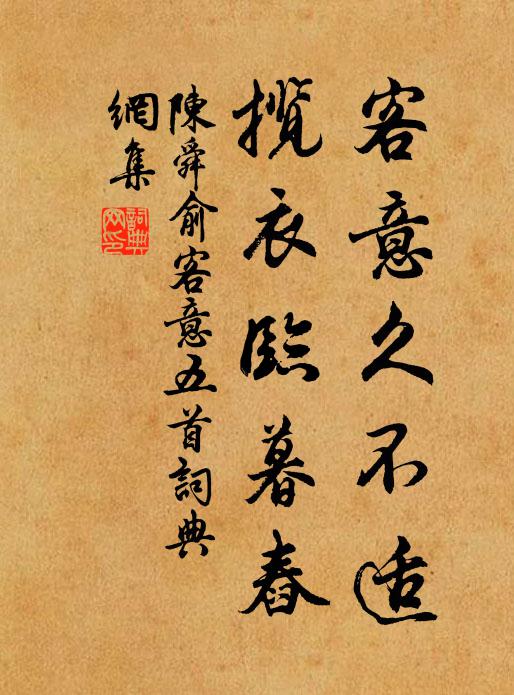 客意久不适
揽衣臨暮春
陳舜俞客意五首詞典
網集
詞典網印